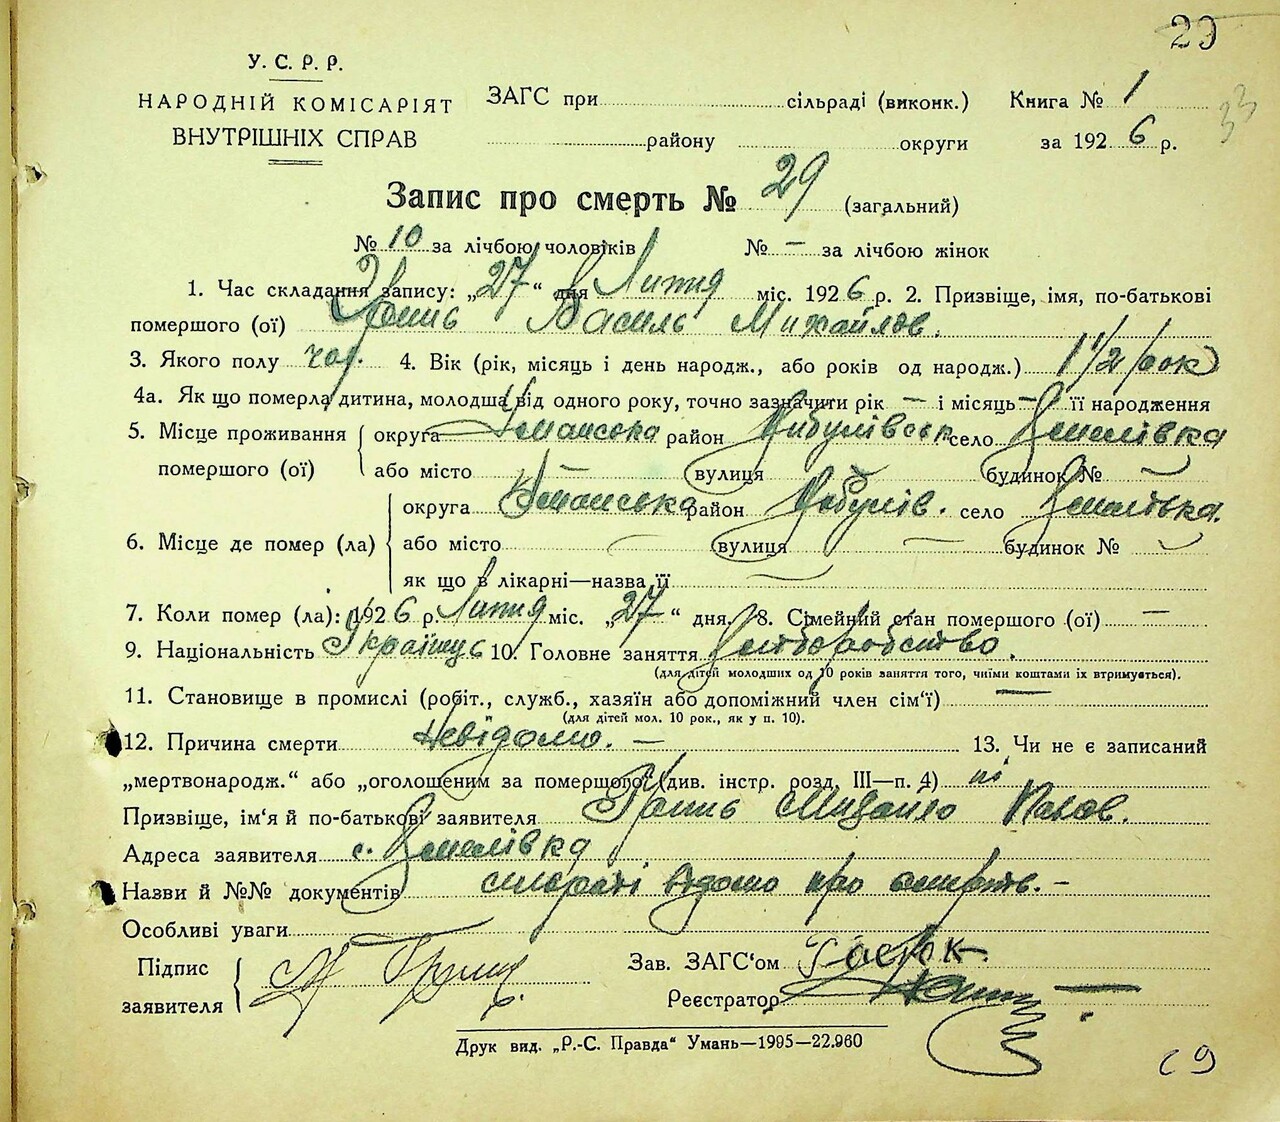 29
33
У. С. Р. Р.
НАРОДНІЙ КОМІСАРІЯТ
ВНУТРІШНІХ СПРАВ
ЗАГС при сільраді (виконк.) Книга № 1
району округи за 1926 р.
Запис про смерть № 29 (загальний)
№ 10 за лічбою чоловіків № – за лічбою жінок
1. Час складання запису: „27“ дня Липня міс. 1926 р. 2. Призвіще, імя, по-батькові
помершого (ої) Василь Михайлов.
3. Якого полу чол. 4. Вік (рік, місяць і день народж., або років од народж.) 1 1/2 рок
4а. Як що померла дитина, молодша від одного року, точно зазначити рік – і місяць – її народження
5. Місце проживання округа Уманська район село
помершого (ої) або місто вулиця будинок №
округа Уманська район село
6. Місце де помер (ла) або місто вулиця будинок №
як що в лікарні—назва її
7. Коли помер (ла): 1926 р. Липня міс. „27“ дня. 8. Сімейний стан помершого (ої) —
9. Національність Українць 10. Головне заняття
(для дітей молодших од 10 років заняття того, чиїми коштами їх втримується).
11. Становище в промислі (робіт., служб., хазяїн або допоміжний член сім'ї) —
(для дітей мол. 10 рок., як у п. 10).
12. Причина смерти Невідомо. — 13. Чи не є записаний
„мертвонародж.“ або „оголошеним за помершого“ (див. інстр. розд. III—п. 4) ні
Призвіще, ім'я й по-батькові заявителя Михайло
Адреса заявителя с.
Назви й №№ документів відомо про смерть. –
Особливі уваги
Підпис Зав. ЗАГС'ом
заявителя Реєстратор
Друк вид. „Р.-С. Правда“ Умань—1995—22.960
29